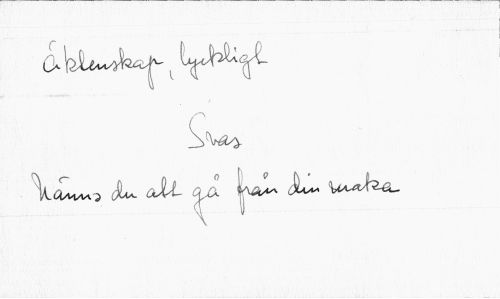 Äktenskap, lyckligt
Svas
Nänns du att gå från din maka